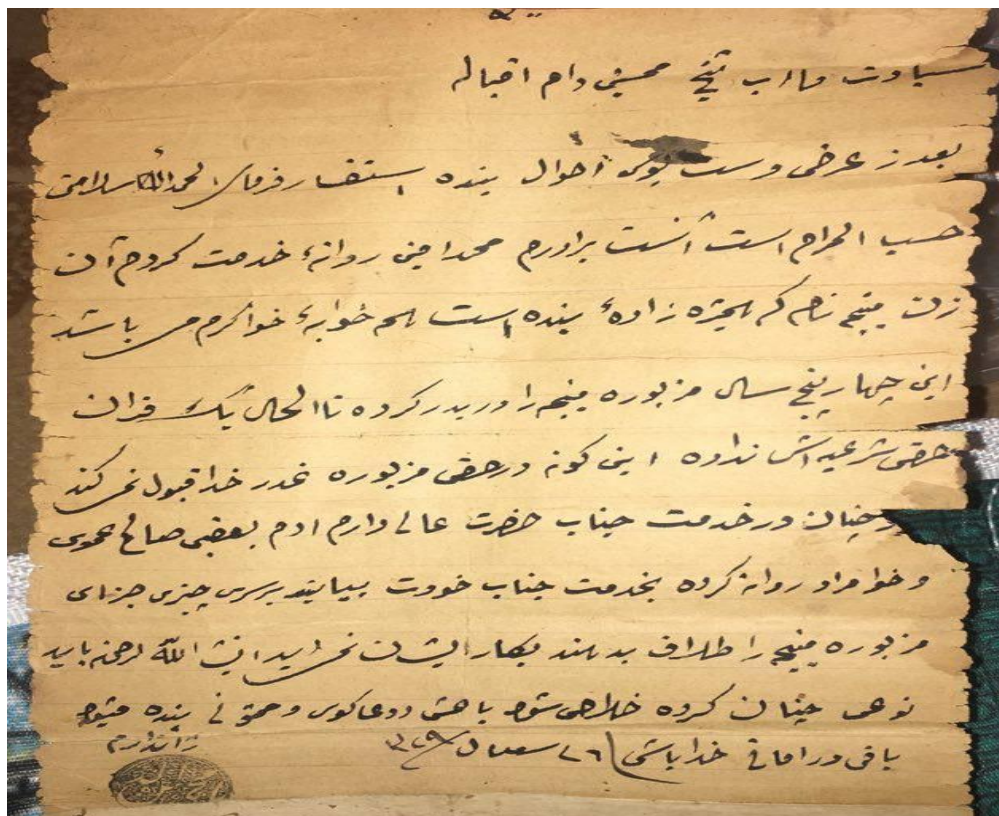 سیادت مااب شیخ محسن دام اقباله
بعد ز عرض دست بوسی احوال بنده استفسار فرمای الحمدالله سلامتی
حسب المرام است آنست برادرم محمد امین روانهٔ خدمت کردم آن
زن منیجه نام که همیژه زادهٔ بنده است هم خوابهٔ خواکرم می باشد
این چهار پنج سال مزبوره منیجه را در بدر کرده تاالحال یک قران
حقی شرعیه اش نداده این گونه در حقی مزبوره غدر خدا قبول نمی کند
چنان در خدمت جناب حضرت عالی دارم ادم بعضی صالح عموی
و خوامراد روانه کرده بخدمت جناب خودت بیایند بررسی چیزی جزای
مزبوره منیجه را طلاق بدهند بکار ایشان نمی آید انشاالله لرحمن باید
نوعی چنان کرده خلاصی شود باعث دوعاکوی و ممنونی بنده میشود
باقی در امانی خدا باشی ٢٦
زا ندارم